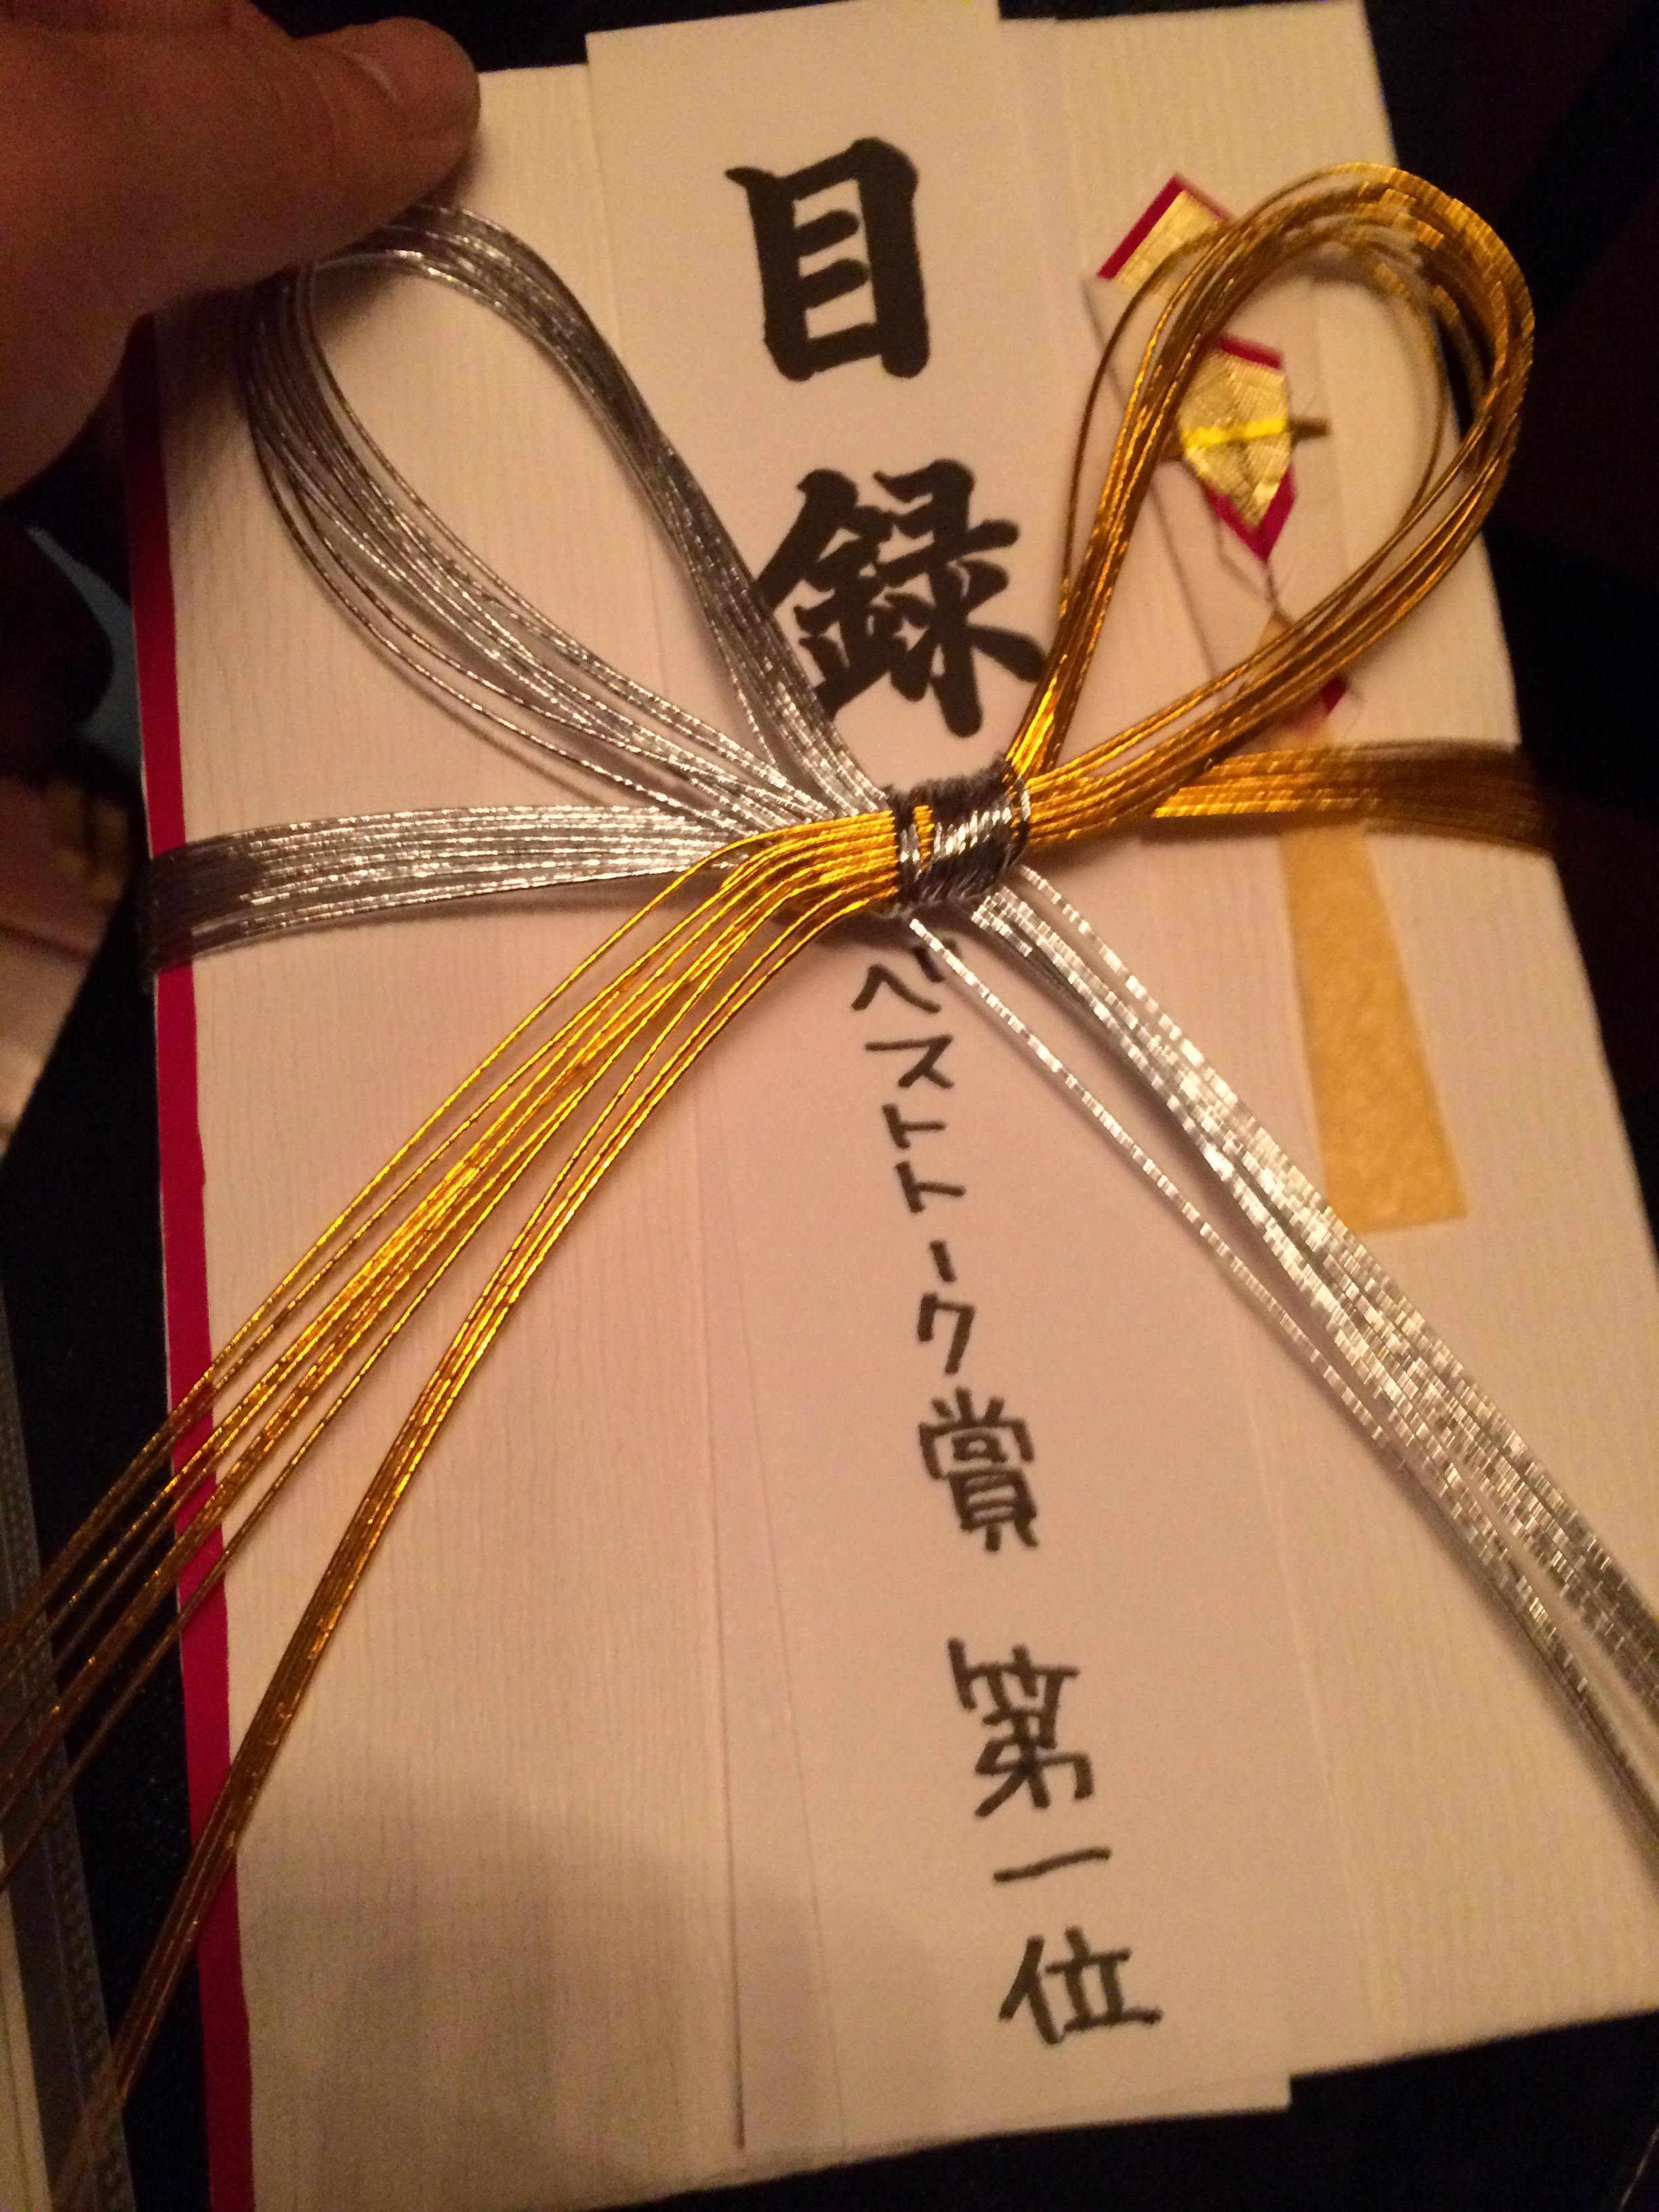 目録
ベストトーク賞 第一位